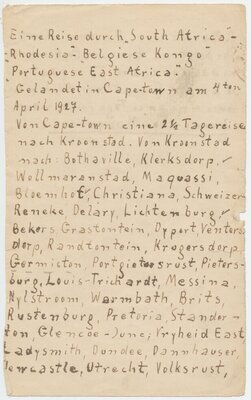 Eine Reise durch "South Africa"-
"Rhodesia" "Belgiese Kongo"
"Portuguese East Africa".
Gelandet in Cape-town am 4ten
April 1927.
Von Cape-town eine 2½ Tagereise
nach Kroonstad. Von Kroonstad
nach: Bothaville, Klerksdorp,
Wollmaranstad, Maquassi,
Bloemhof, Christiana, Schweizer
Reneke, Delary, Lichtemburg,
Bekers, Grastontein, Dyport, Venters
dorp, Randtontein, Krugersdorp
Germicton, Portgietersrust, Pieters-
burg, Louis-Trichardt, Messina,
Nylstroom, Warmbath, Brits,
Rustenburg, Pretoria, Stander-
ton, Glencoe-June, Vryheid East
Ladysmith, Dundee, Dannhauser,
Newcastle, Utrecht, Volksrust,